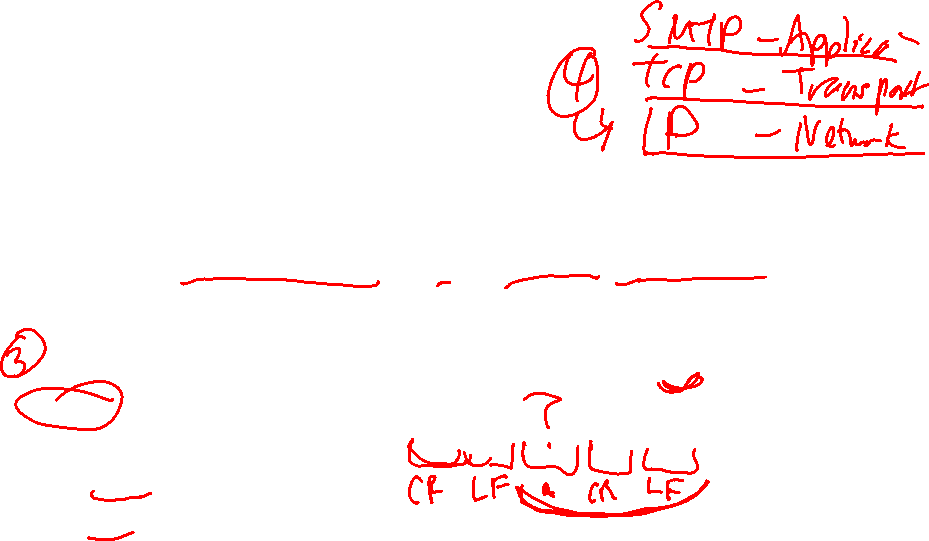 SMTP - Applica-
④ TCP - Transport
IP - Network
③
?
CR LF . CR LF